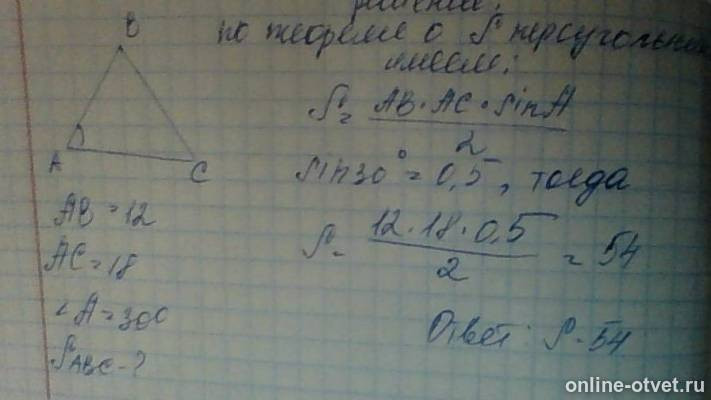 решение:
по теореме о S треугольника
имеем:
B
A
C
S = AB · AC · sin A / 2
sin 30° = 0,5, тогда
AB = 12
AC = 18
∠A = 30°
S ABC - ?
S = 12 · 18 · 0,5 / 2 = 54
Ответ: S - 54
online-otvet.ru